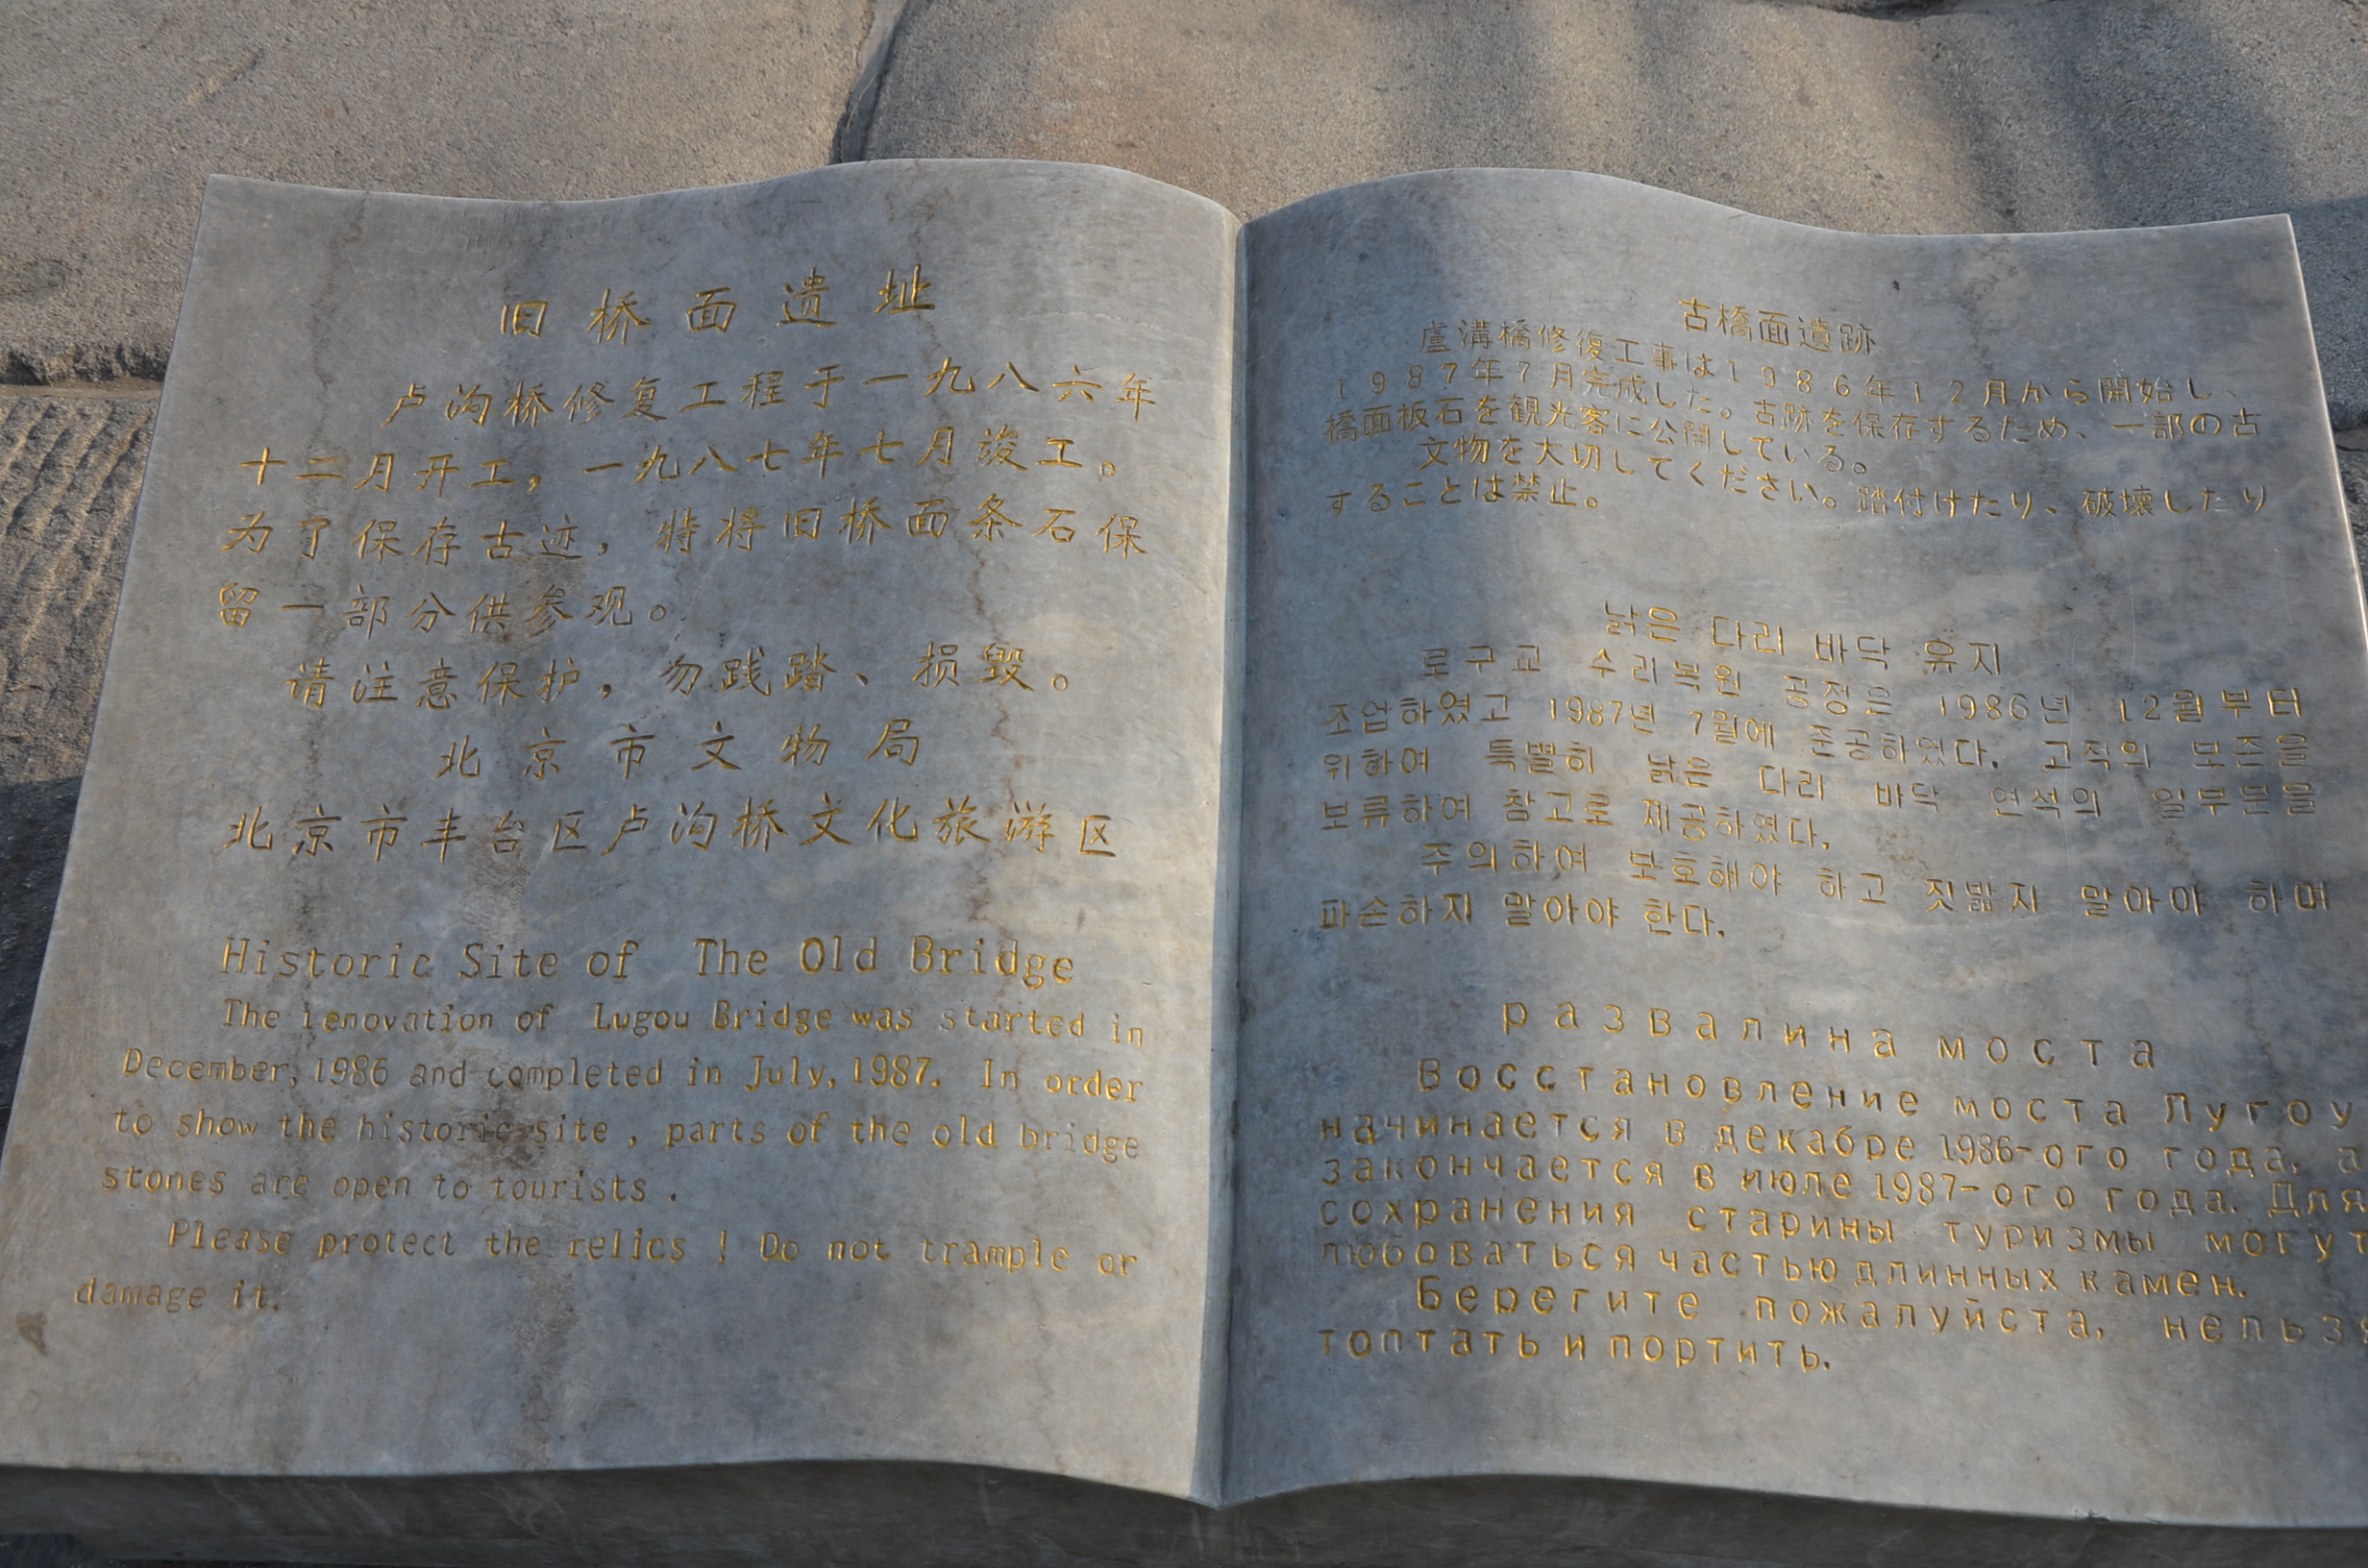 旧桥面遗址
卢沟桥修复工程于一九八六年
十二月开工，一九八七年七月竣工。
为了保存古迹，特将旧桥面条石保
留一部分供参观。
请注意保护，勿践踏、损毁。
北京市文物局
北京市丰台区卢沟桥文化旅游区
Historic Site of The Old Bridge
The renovation of Lugou Bridge was started in
December, 1986 and completed in July, 1987. In order
to show the historic site , parts of the old bridge
stones are open to tourists .
Please protect the relics ! Do not trample or
damage it.
古橋面遺跡
盧溝橋修復工事は1986年12月から開始し、
1987年7月完成した。古跡を保存するため、一部の古
橋面板石を観光客に公開している。
文物を大切してください。踏付けたり、破壊したり
することは禁止。
낡은 다리 바닥 유지
로구교 수리복원 공정은 1986년 12월부터
조업하였고 1987년 7월에 준공하였다. 고적의 보존을
위하여 특별히 낡은 다리 바닥 연석의 일부분을
보류하여 참고로 제공하였다.
주의하여 보호해야 하고 짓밟지 말아야 하며
파손하지 말아야 한다.
развалина моста
Восстановление моста Лугоу
начинается в декабре 1986-ого года, а
закончается в июле 1987-ого года. Для
сохранения старины туризмы могут
любоваться частью длинных камен.
Берегите пожалуйста, нельзя
топтать и портить.